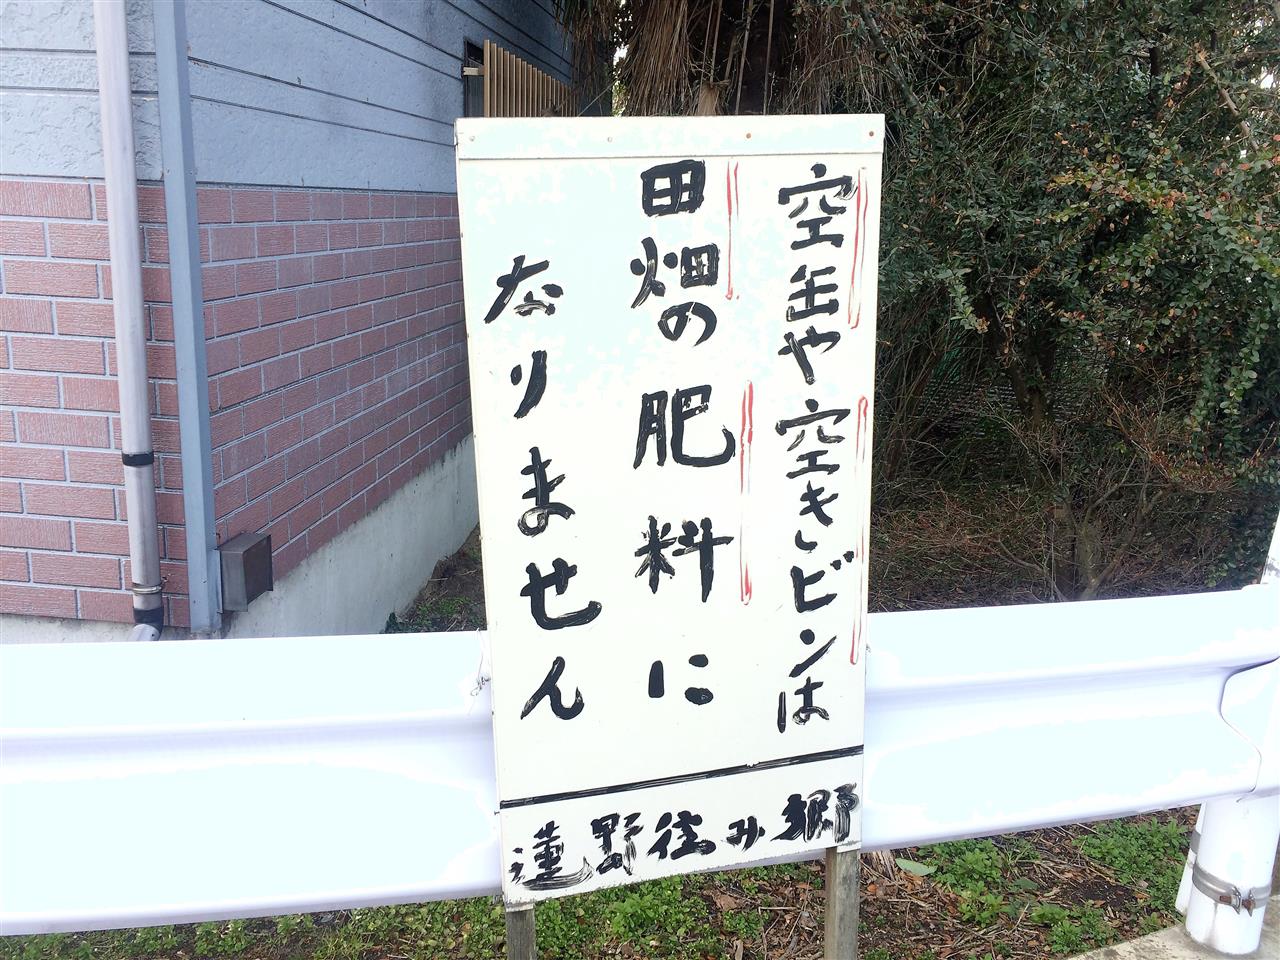 空缶や空きビンは
田畑の肥料に
なりません
蓮野住み郷